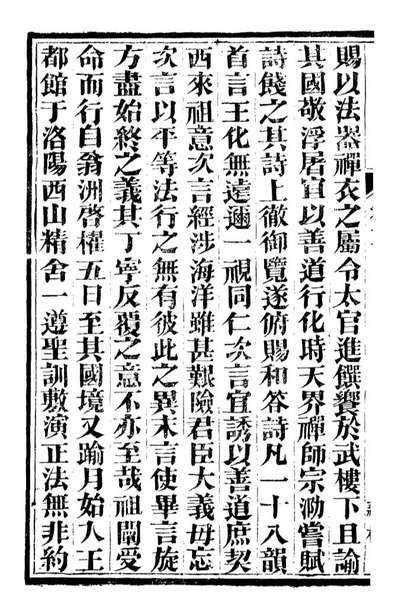 賜以法器禪衣之屬令太官進饌饗於武樓下且諭
其國敬浮屠宜以善道行化時天界禪師宗泐嘗賦
詩餞之其詩上徹御覽遂俯賜和答詩凡一十八韻
首言王化無遠邇一視同仁次言宜誘以善道庶契
西來祖意次言經涉海洋雖甚艱險君臣大義毋忘
次言以平等法行之無有彼此之異末言使畢言旋
方盡始終之義其丁寧反覆之意不亦至哉祖闡受
命而行自翁洲啓櫂五日至其國境又踰月始入王
都館于洛陽西山精舍一遵聖訓敷演正法無非約